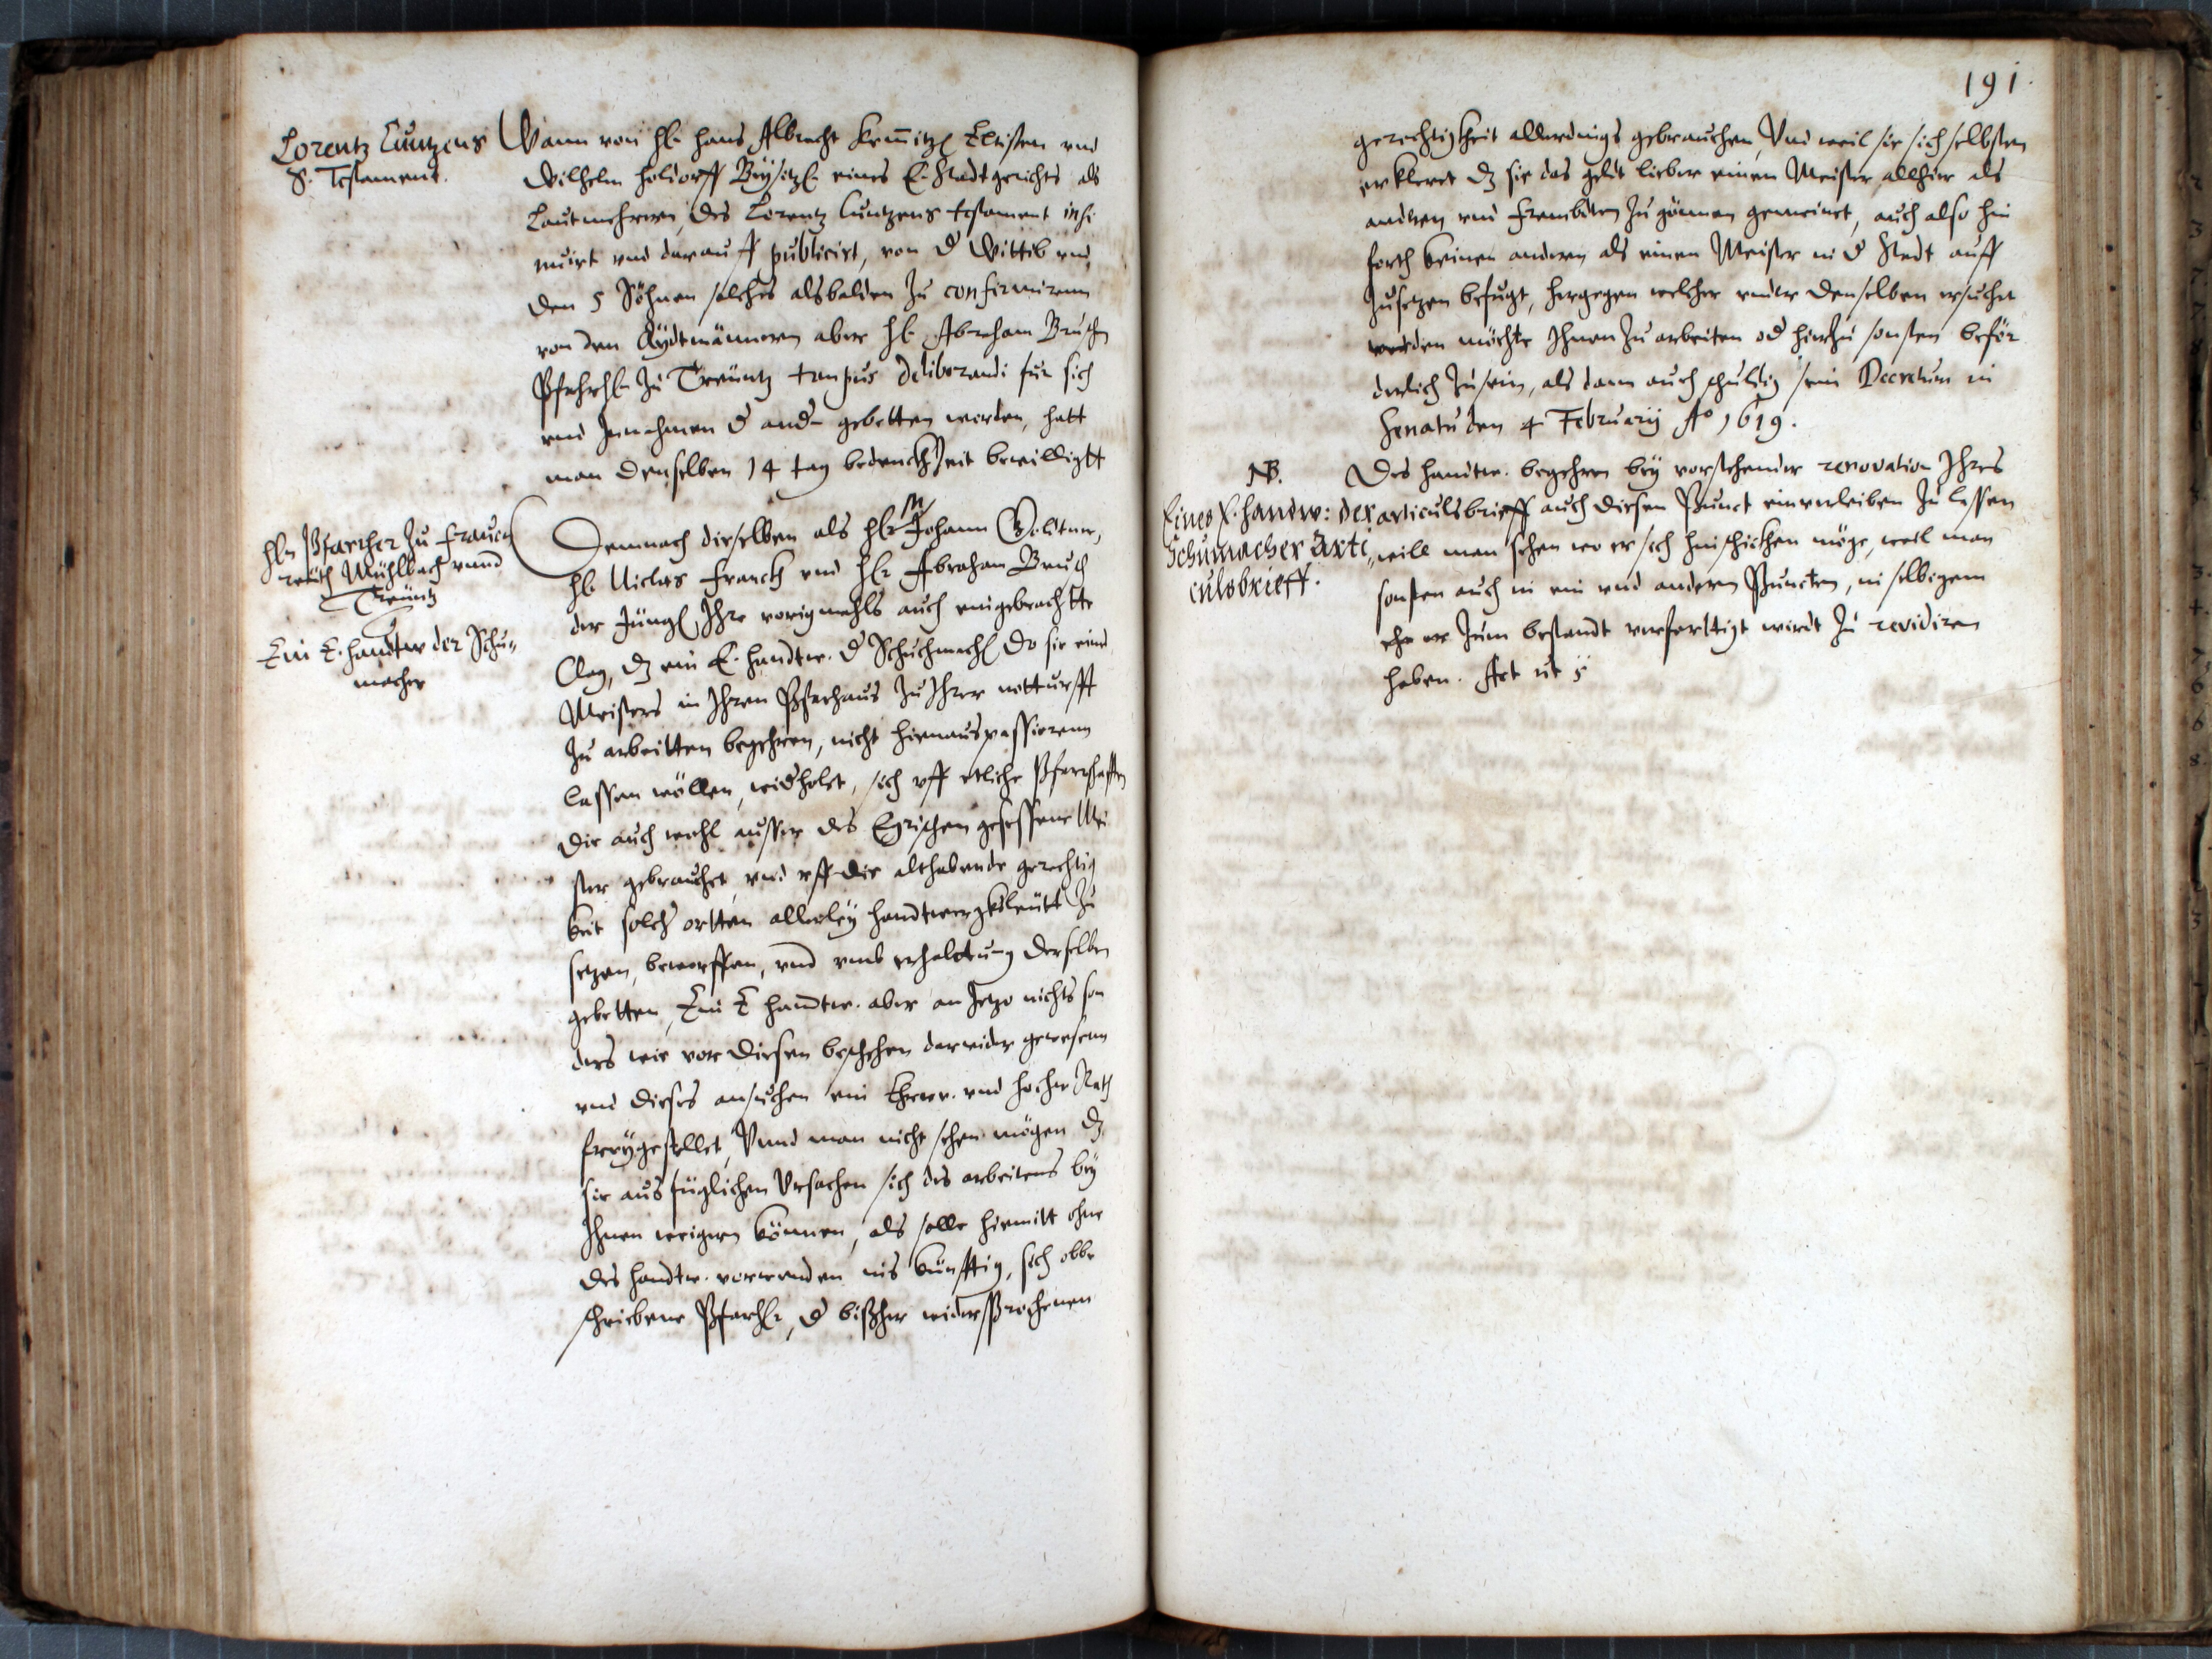 Lorentz Cuntzens
S. Testament.
Wann von H. Hans Albrecht Clausen und
Wilhelm Holdorff Beysitz. eines E. Stadtgerichts als
Leutmehrern, des Lorentz Cuntzens testament insi
nuirt und darauff publicirt, von d Wittib und
den 5 Söhnen solches alsbalden zu confirmirenn
von den Aydtmännern aber H. Abraham Bruschen
Pfahrh. zu Treuntz tempus deliberandi für sich
und Innahmen d and. gebetten worden, hatt
man denselben 14 tag bedenckzeit bewilligtt
Hln Pfarrher zu Frauen
reuth Mühlbach unnd
Treuntz
Ein E. handtw der Schu„
macher
Demnach dieselben als Hr M Johann Goldtner,
H. Niclas Franck und Hr Abraham Bruch
der Jüng. Ihre vorigmahls auch eingebrachtte
Clag, dz ein E. handtw. d Schuchmach. do sie eines
Meisters in Ihren Pfarhaus zu Ihrer notturfft
zu arbeitten begehren, nicht hienaus passierenn
lassen wöllen, widholet, sich uff etliche Pfarschafften
die auch wohl ausser des Egrischen gesessene Mei
ster gebrauchet, und uff die althabende gerechtig
keit solch ortten allerley handtwerzksleutt zu
setzen, beworffen, und umb erhalttung derselben
gebetten, Ein E handtw. aber an Jetzo nichts son
ders wie vor diesen beschehen darwider gewesenn
und dieses ansuchen ein Ehrnv. und hocher Rath
freygestellet, Unnd man nicht sehen mögen dz
sie aus füglichen Ursachen sich des arbeitens bey
Ihnen weigern können, als solle hiemitt ohne
des handtw. verwenden ins künfftig, sich obbe
schriebene Pfarhr, d bißher widersprochenen
191.
gerechtigkeit allerdings gebrauchen, Und weil sie sich selbsten
erkleret dz sie das geldt lieber einen Meister allhier als
andern und frembden zu gönnen gemeinet, auch also hin
forth keinen andern als einen Meister in d Stadt auff
zusetzen befugt, hergegen welcher under denselben ersuchet
werden möchte Ihnen zu arbeiten od hierzu sonsten beför
derlich zu sein, als dann auch schuldig sein Decretum in
Senatu den 4 February Ao 1619.
NB.
Eines E. handw: der
Schumacher Arti„
culsbrieff.
Des handtw. begehren bey vorstehender renovation Ihres
articulsbrieff auch diesen Punct einverleiben zu lassen
will man sehen wo er sich hinschicken möge, weil man
sonsten auch in ein und andern Puncten, in selbigem
ehe er zum bestandt verferttigt wirdt zu revidiren
haben. Act ut s